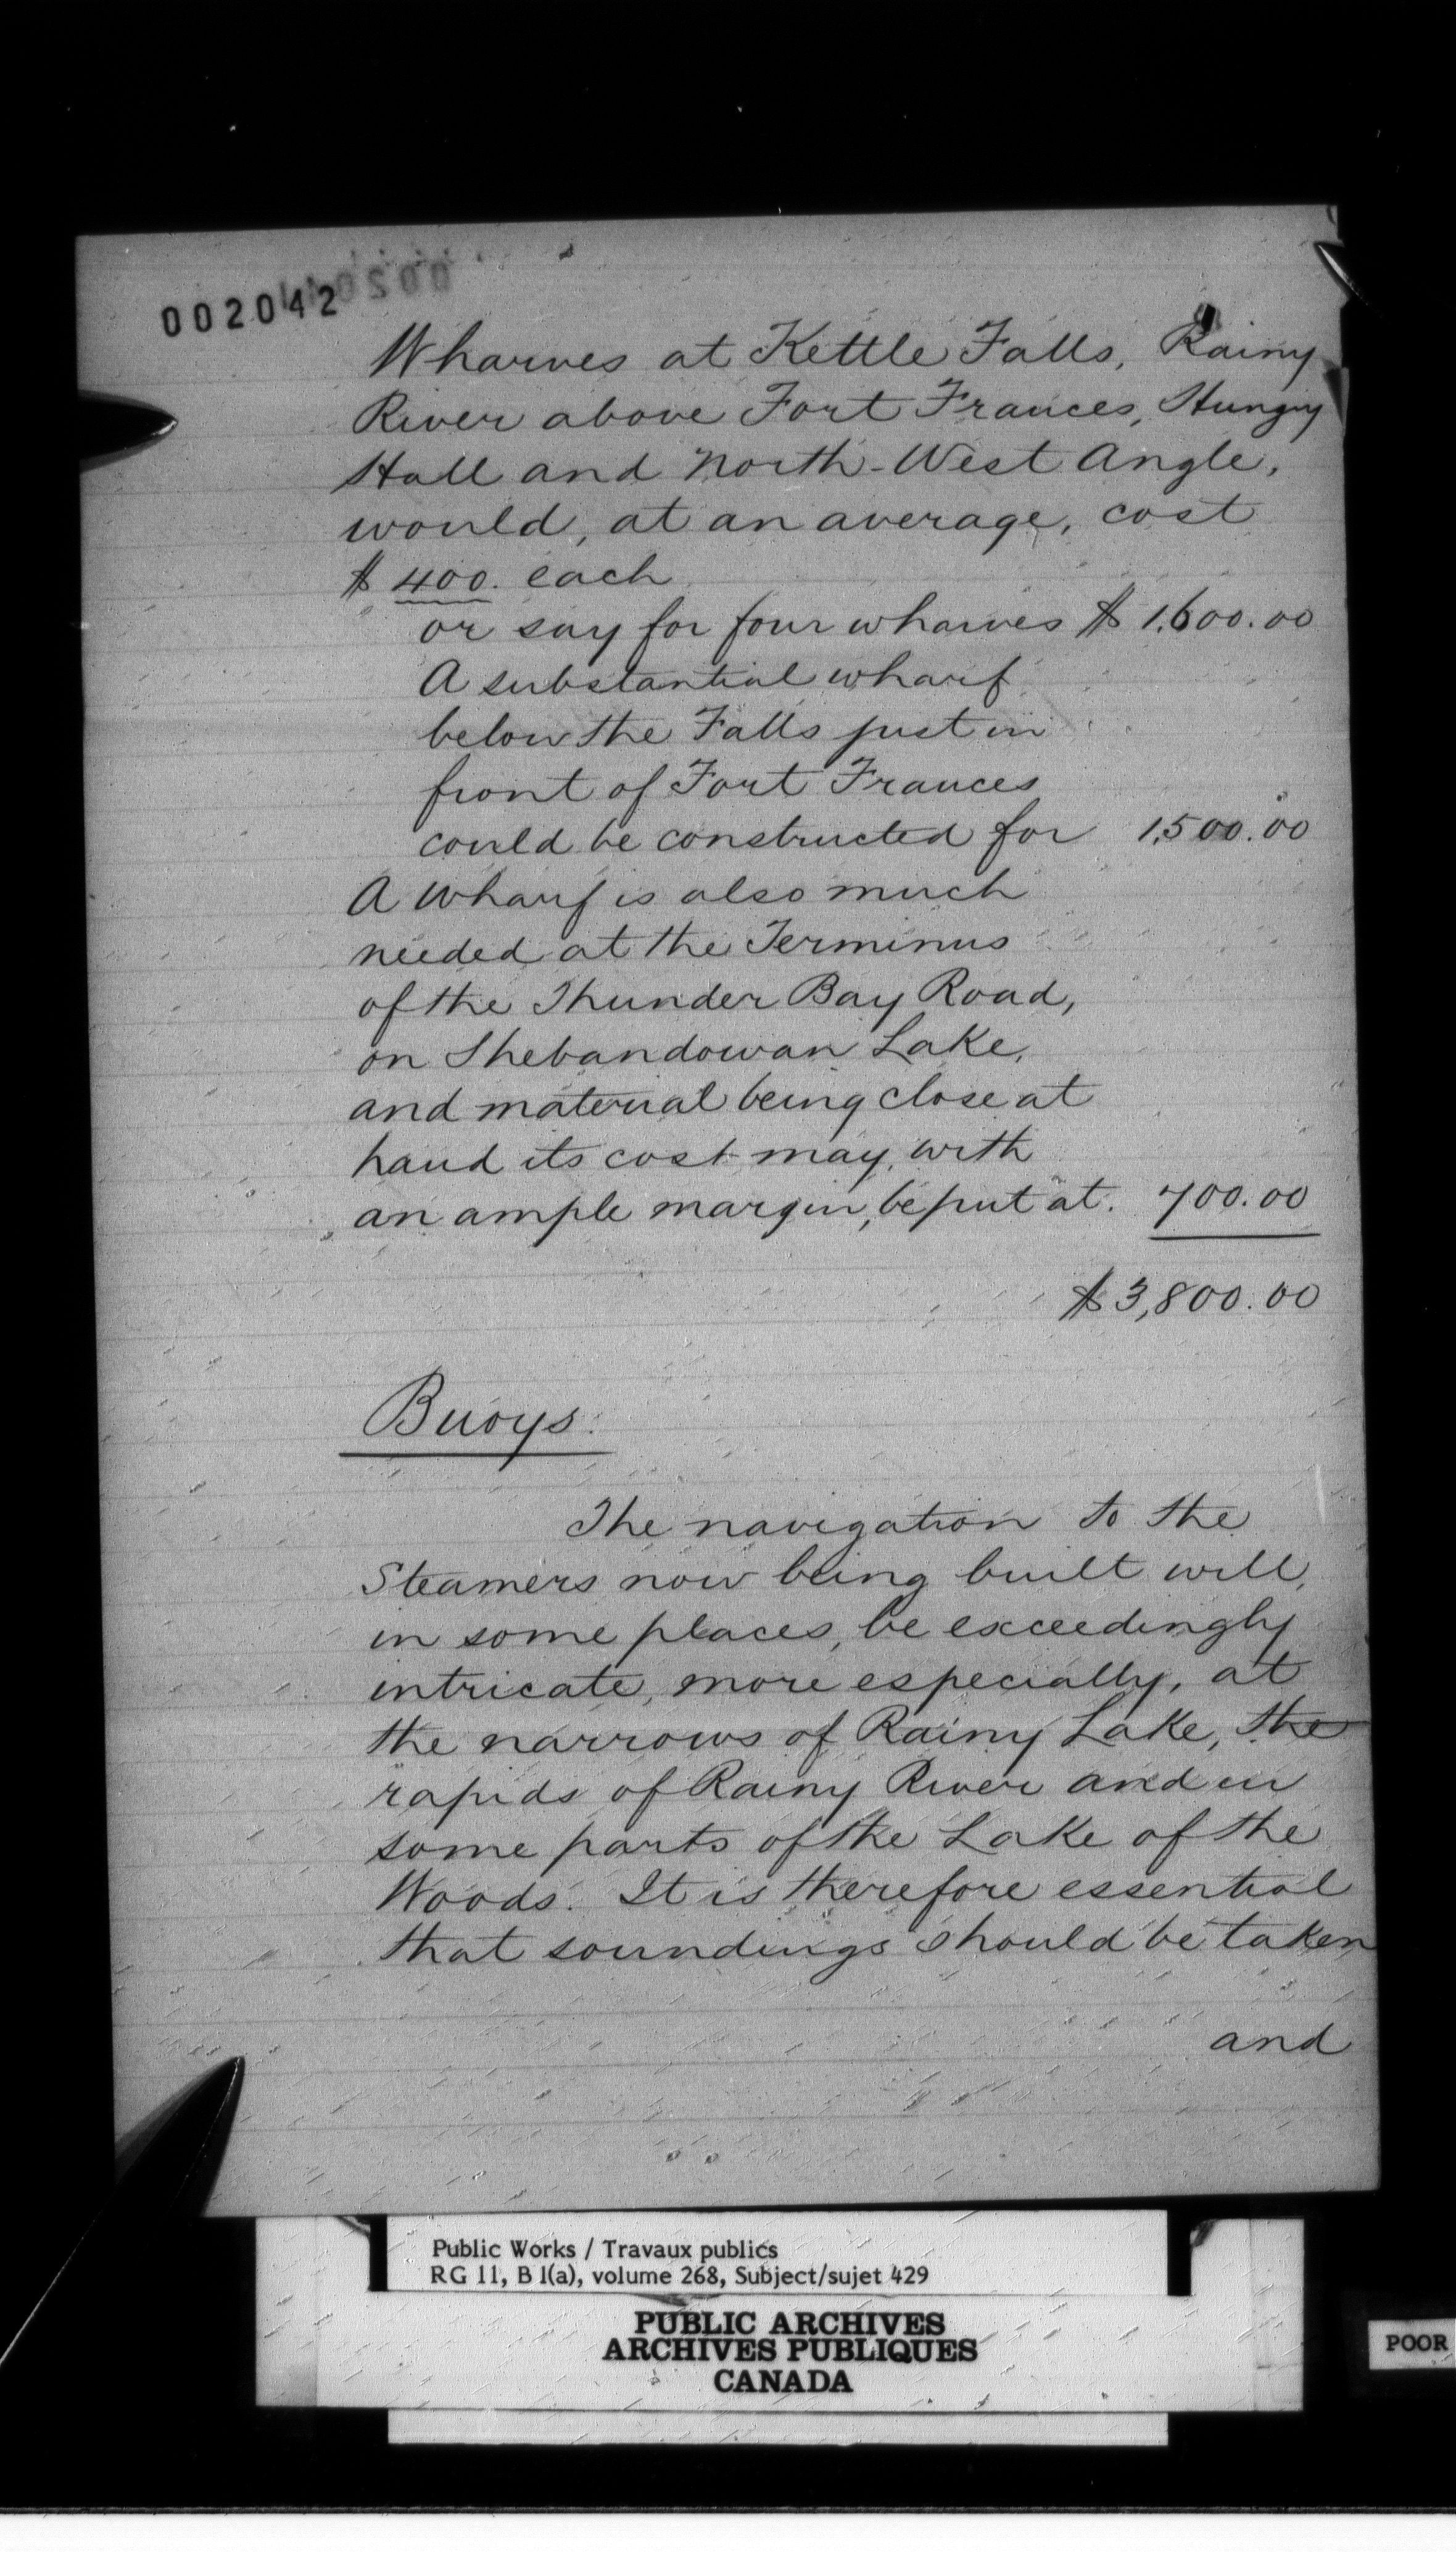 002042
Wharves at Kettle Falls, Rainy
River above Fort Frances, Hungry
Hall and North-West Angle,
would, at an average, cost
$400. each
or say for four wharves $1,600.00
A substantial wharf
below the Falls just in
front of Fort Frances
could be constructed for 1,500.00
A Wharf is also much
needed at the Terminus
of the Thunder Bay Road,
on Shebandowan Lake,
and material being close at
hand its cost may, with
an ample margin, be put at. 700.00
$3,800.00
Buoys.
The navigation to the
Steamers now being built will,
in some places, be exceedingly
intricate, more especially, at
the narrows of Rainy Lake, the
rapids of Rainy River and in
some parts of the Lake of the
Woods. It is therefore essential
that soundings should be taken
and
Public Works / Travaux publics
RG 11, B 1(a), volume 268, Subject/sujet 429
PUBLIC ARCHIVES
ARCHIVES PUBLIQUES
CANADA
POOR